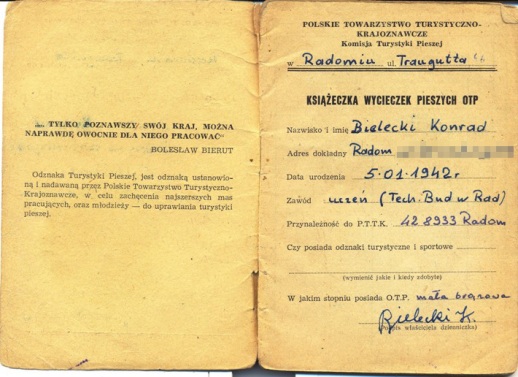 „... TYLKO POZNAWSZY SWÓJ KRAJ, MOŻNA
NAPRAWDĘ OWOCNIE DLA NIEGO PRACOWAĆ"
BOLESŁAW BIERUT
Odznaka Turystyki Pieszej, jest odznaką ustanowio-
ną i nadawaną przez Polskie Towarzystwo Turystyczno-
Krajoznawcze, w celu zachęcenia najszerszych mas
pracujących, oraz młodzieży — do uprawiania turystyki
pieszej.
POLSKIE TOWARZYSTWO TURYSTYCZNO-
KRAJOZNAWCZE
Komisja Turystyki Pieszej
w Radomiu ul. Traugutta
KSIĄŻECZKA WYCIECZEK PIESZYCH OTP
Nazwisko i imię Bielecki Konrad
Adres dokładny Radom
Data urodzenia 5.01.1942r.
Zawód uczeń (Tech. Bud w Rad)
Przynależność do P.T.T.K. 428933 Radom
Czy posiada odznaki turystyczne i sportowe
(wymienić jakie i kiedy zdobyte)
W jakim stopniu posiada O.T.P. mała brązowa
Bielecki K.
(Podpis właściciela dzienniczka)